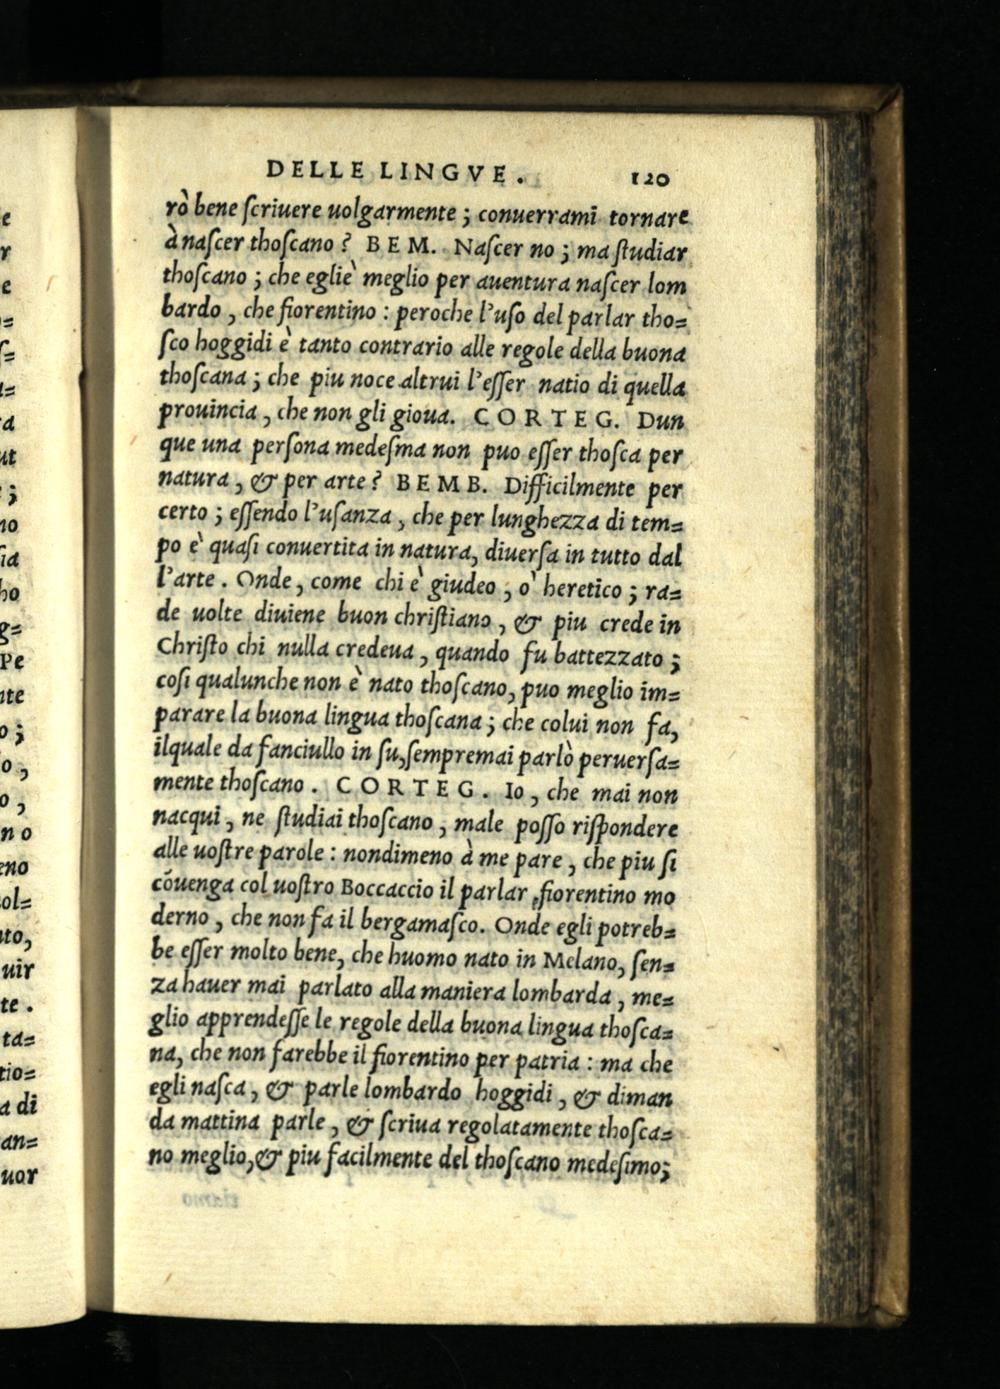 DELLE LINGVE. 120
rò bene ſcriuere uolgarmente; conuerrami tornare
à naſcer thoſcano? BEM. Naſcer no; ma ſtudiar
thoſcano; che egliè meglio per auentura naſcer lom
bardo, che fiorentino: peroche l'uſo del parlar tho=
ſco hoggidi è tanto contrario alle regole della buona
thoſcana; che piu noce altrui l'eſſer natio di quella
prouincia, che non gli gioua. CORTEG. Dun
que una perſona medeſma non puo eſſer thoſca per
natura, & per arte? BEMB. Difficilmente per
certo; eſſendo l'uſanza, che per lunghezza di tem=
po è quaſi conuertita in natura, diuerſa in tutto dal
l'arte. Onde, come chi è giudeo, o' heretico; ra=
de uolte diuiene buon chriſtiano, & piu crede in
Chriſto chi nulla credeua, quando fu battezzato;
coſi qualunche non è nato thoſcano, puo meglio im=
parare la buona lingua thoſcana; che colui non fa,
ilquale da fanciullo in ſu, ſempremai parlò peruerſa=
mente thoſcano. CORTEG. Io, che mai non
nacqui, ne ſtudiai thoſcano, male poſſo riſpondere
alle uoſtre parole: nondimeno à me pare, che piu ſi
cōuenga col uoſtro Boccaccio il parlar fiorentino mo
derno, che non fa il bergamaſco. Onde egli potreb=
be eſſer molto bene, che huomo nato in Melano, ſen=
za hauer mai parlato alla maniera lombarda, me=
glio apprendeſſe le regole della buona lingua thoſca=
na, che non farebbe il fiorentino per patria: ma che
egli naſca, & parle lombardo hoggidi, & diman
da mattina parle, & ſcriua regolatamente thoſca=
no meglio, & piu facilmente del thoſcano medeſimo;